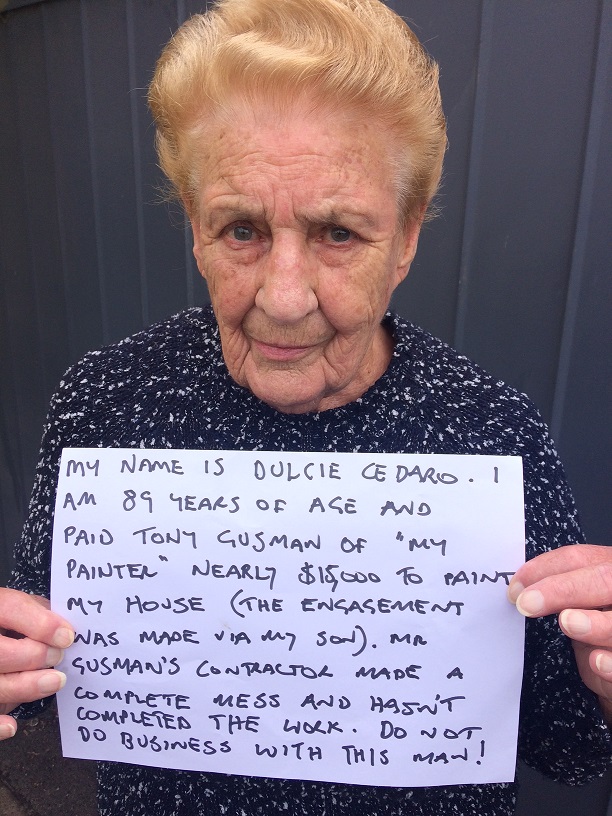 MY NAME IS DULCIE CEDARO. I
AM 89 YEARS OF AGE AND
PAID TONY GUSMAN OF "MY
PAINTER" NEARLY $15,000 TO PAINT
MY HOUSE (THE ENGAGEMENT
WAS MADE VIA MY SON). MR
GUSMAN'S CONTRACTOR MADE A
COMPLETE MESS AND HASN'T
COMPLETED THE WORK. DO NOT
DO BUSINESS WITH THIS MAN!